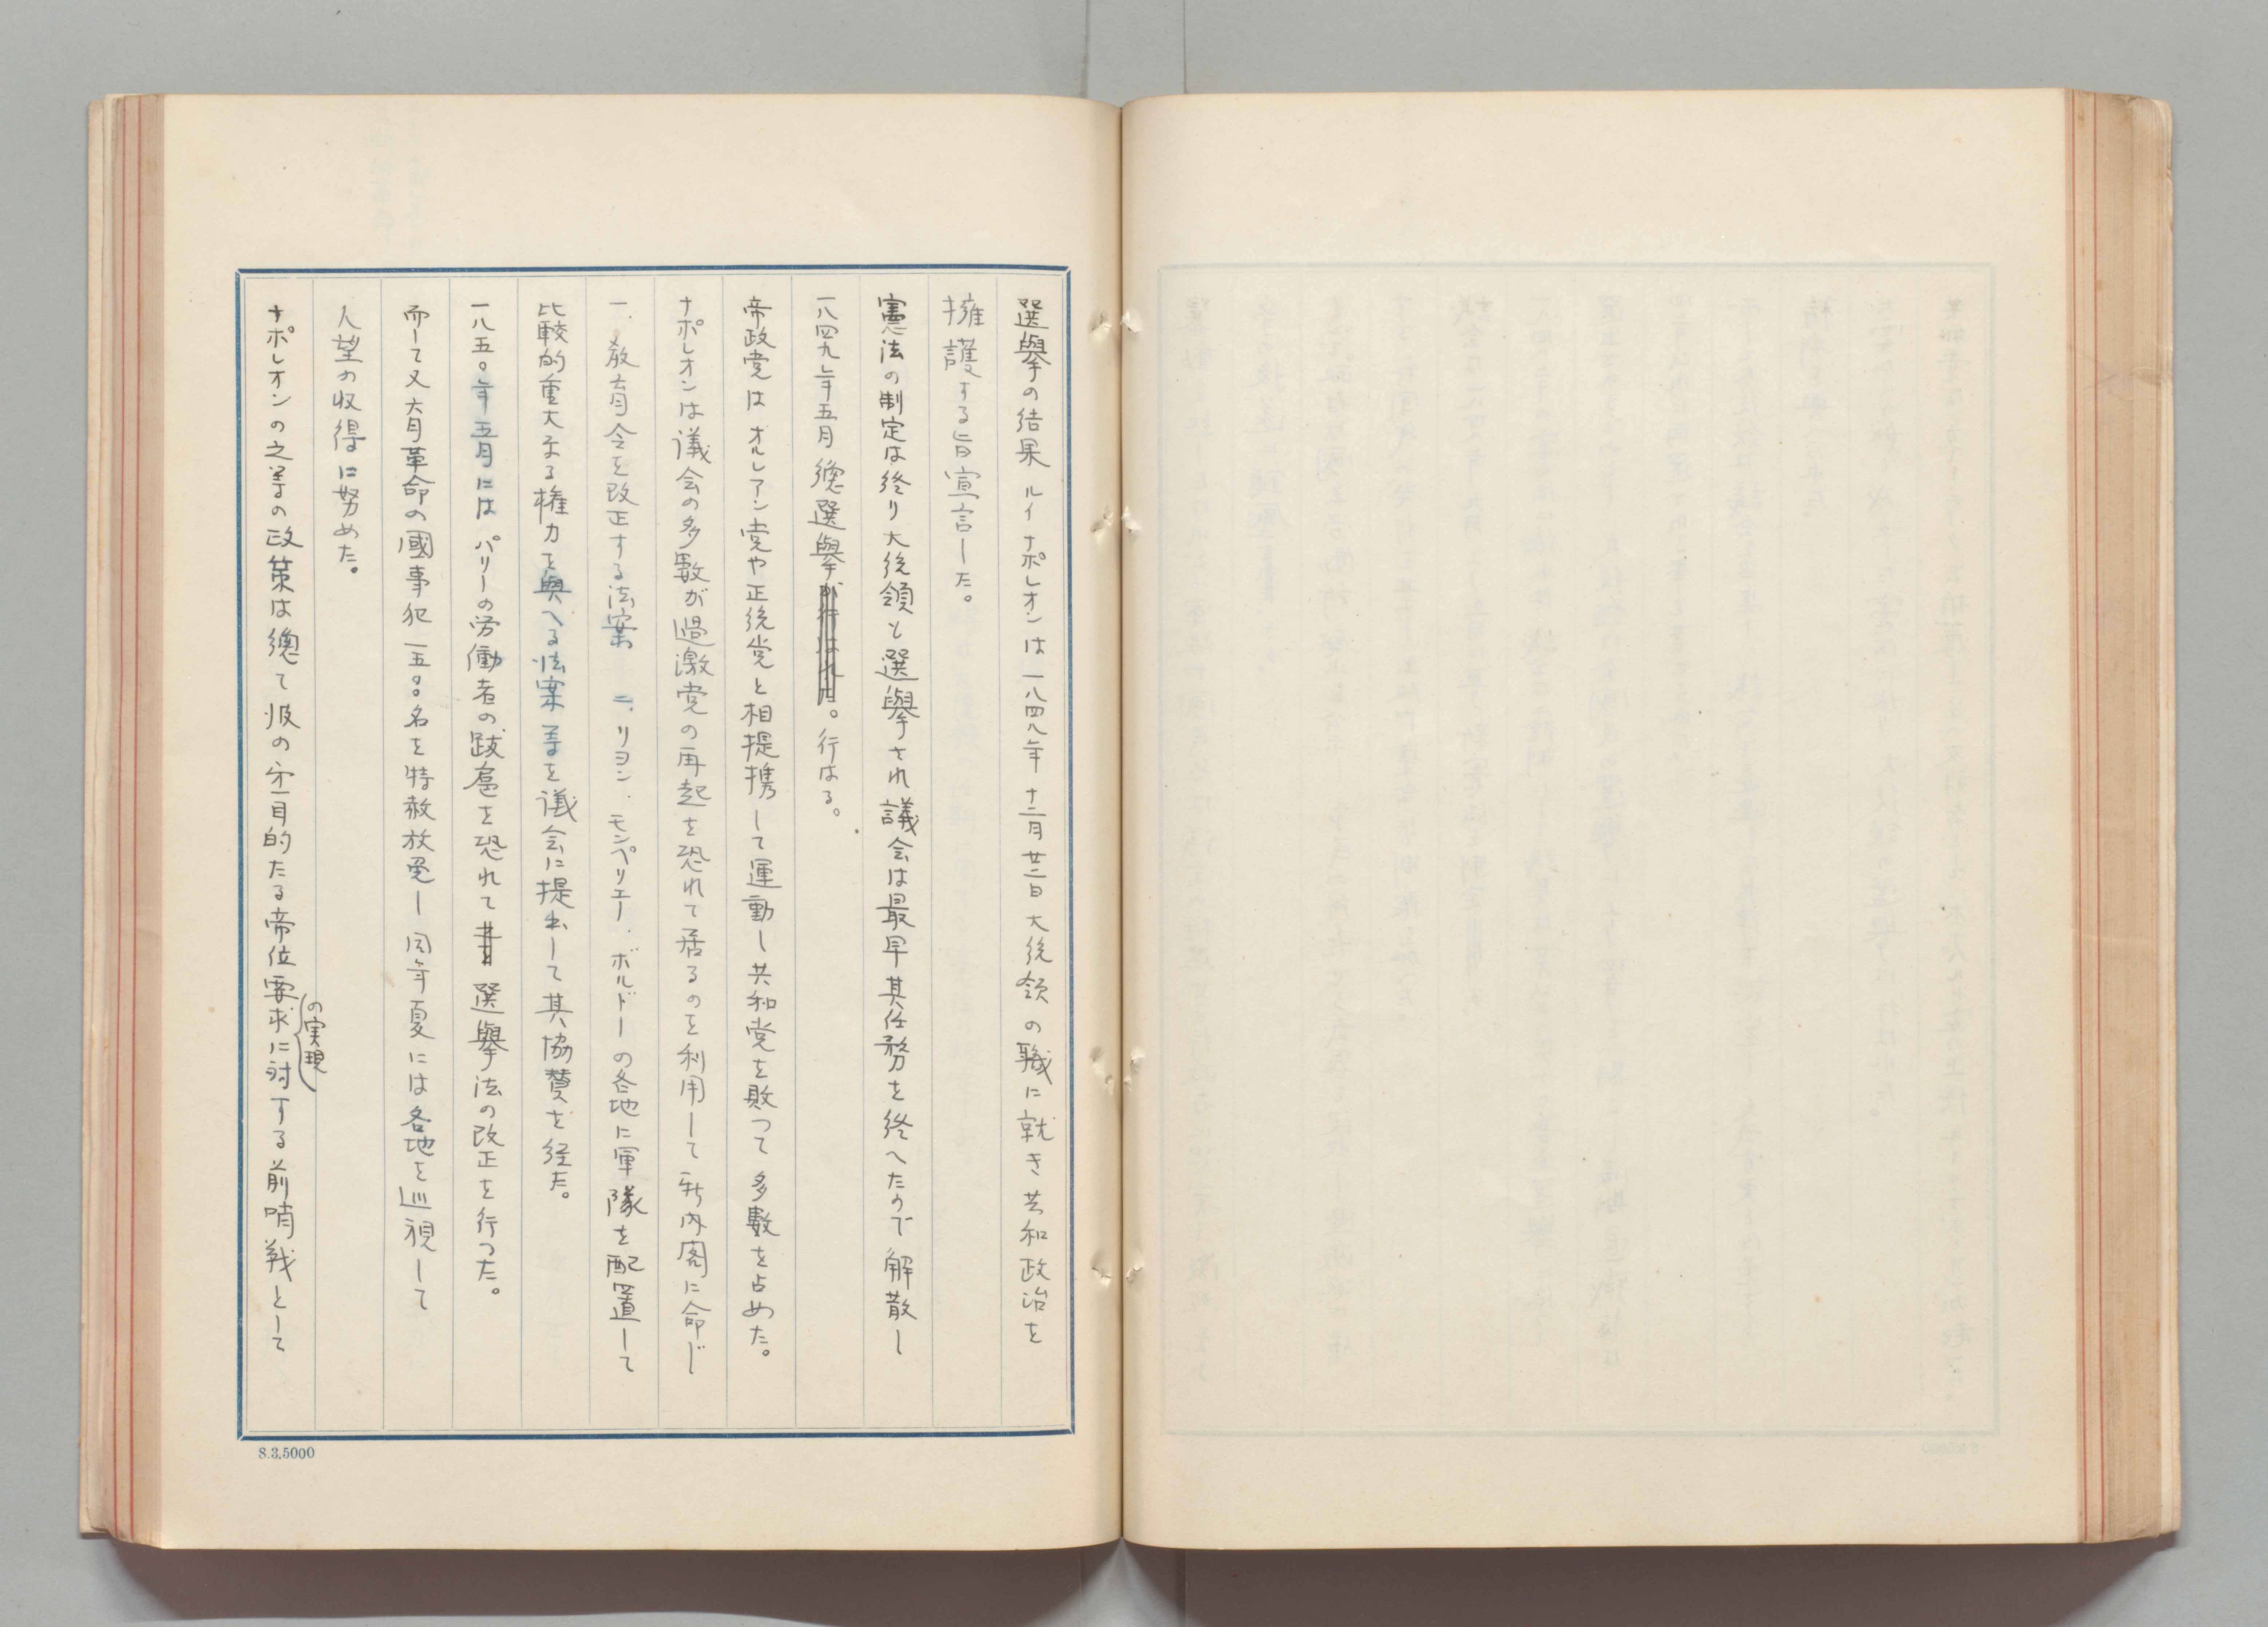 選擧の結果 ルイナポレオンは一八四八年十二月廿二日大統領の職に就き共和政治を
擁護する旨宣言した。
憲法の制定は終り大統領も選擧され議会は最早其任務を終へたので解散し
一八四九年五月總選擧が行はれた。行はる。
帝政党はオルレアン党や正統党と相提携して運動し共和党を敗つて多數を占めた。
ナポレオンは議会の多數が過激党の再起を恐れて居るのを利用して新内閣に命じ
一、教育令を改正する法案 二、リヨン、モンペリエー、ボルドーの各地に軍隊を配置して
比較的重大なる権力を與へる法案等を議会に提出して其協賛を経た。
一八五〇年五月には パリーの労働者の跋扈を恐れて 選擧法の改正を行つた。
而して又六月革命の國事犯一五〇〇名を特赦放免し同年夏には各地を巡視して
人望の収得に努めた。
ナポレオンの之等の政策は總て彼の第一目的たる帝位要求に対する前哨戦として
の実現
8.3.5000